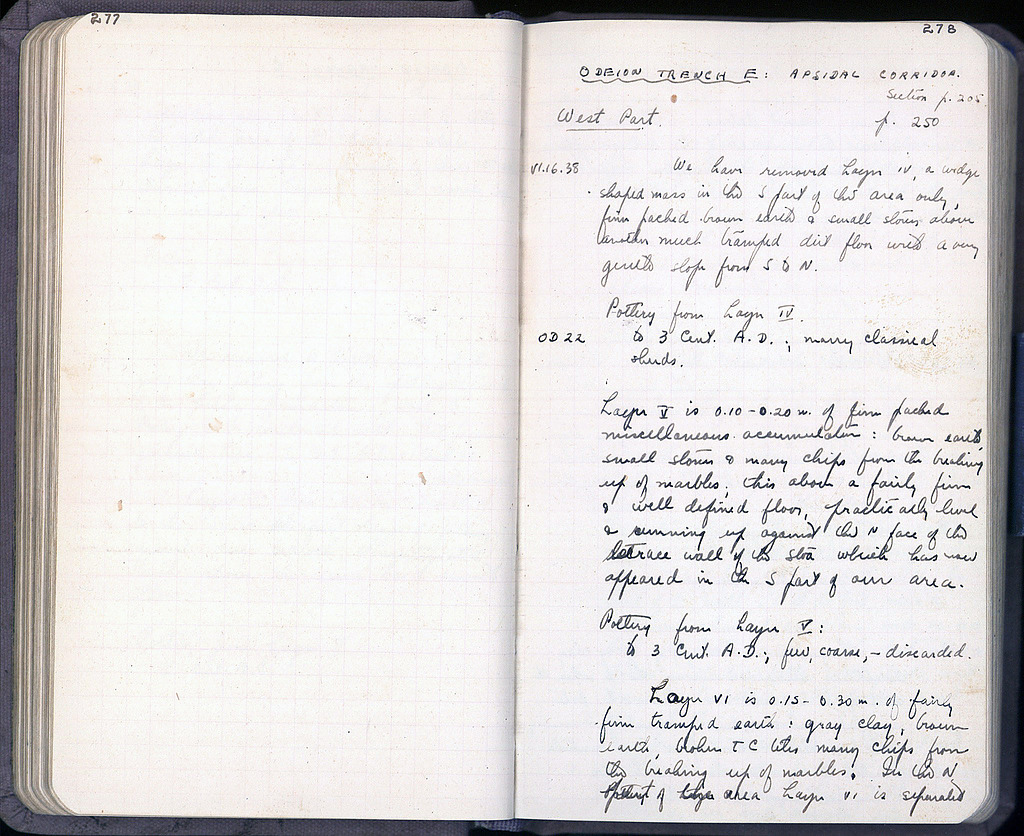 277
278
ODEION TRENCH E: APSIDAL CORRIDOR.
Section p. 205
West Part.
p. 250
VI.16.38
We have removed Layer IV, a wedge
shaped mass in the S part of the area only,
firm packed brown earth & small stones above
another much tramped dirt floor with a very
gentle slope from S to N.
Pottery from Layer IV.
OD 22
to 3 Cent. A.D.; many classical
sherds.
Layer V is 0.10-0.20 m. of firm packed
miscellaneous accumulation: brown earth,
small stones & many chips from the breaking
up of marbles, this above a fairly firm
& well defined floor, practically level
& running up against the N face of the
terrace wall of the Stoa which has now
appeared in the S part of our area.
Pottery from Layer V:
to 3 Cent. A.D.; few, coarse, - discarded.
Layer VI is 0.15-0.30 m. of fairly
firm tramped earth: gray clay, brown
earth, broken TC tiles many chips from
the breaking up of marbles. In the N
part of area Layer VI is separated